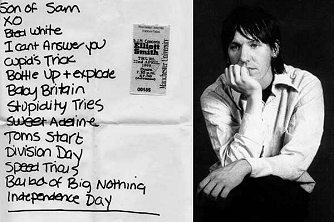 Son of Sam
XO
Bled White
I cant Answer you
Cupid's Trick
Bottle Up + explode
Baby Britain
Stupidity Tries
Sweet Adeline
Toms Start
Division Day
Speed Trials
Ballad of Big Nothing
Independence Day
Elliott
Smith
Manchester University
00185